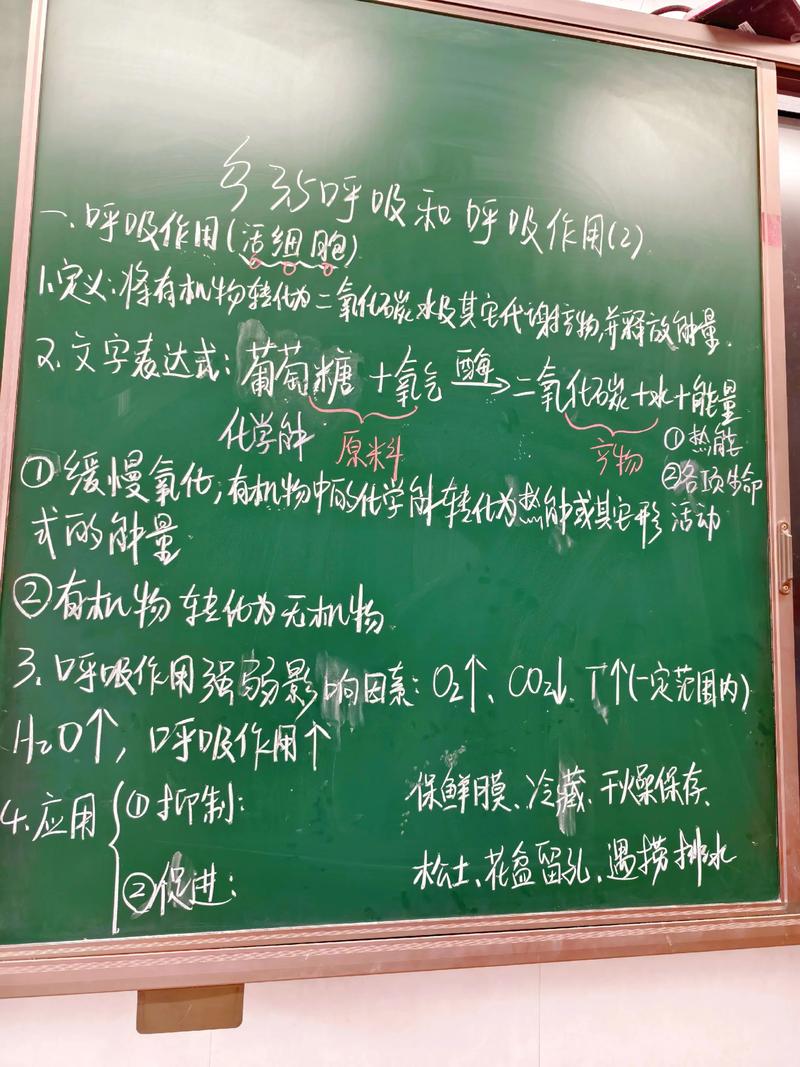 呼吸和呼吸作用(2)
一、呼吸作用(活细胞)
1.定义:将有机物转化为二氧化碳水及其它代谢产物,并释放能量.
2.文字表达式:葡萄糖+氧气 酶→ 二氧化碳+水+能量
化学能 原料 产物 ①热能
②各项生命活动
①缓慢氧化,有机物中的化学能转化为热能或其它形式的能量
②有机物转化为无机物
3.呼吸作用强弱影响因素:O₂↑、CO₂↓、T↑(一定范围内)
H₂O↑,呼吸作用↑
4.应用 ①抑制: 保鲜膜、冷藏、干燥保存、
②促进: 松土、花盆留孔、遇捞排水